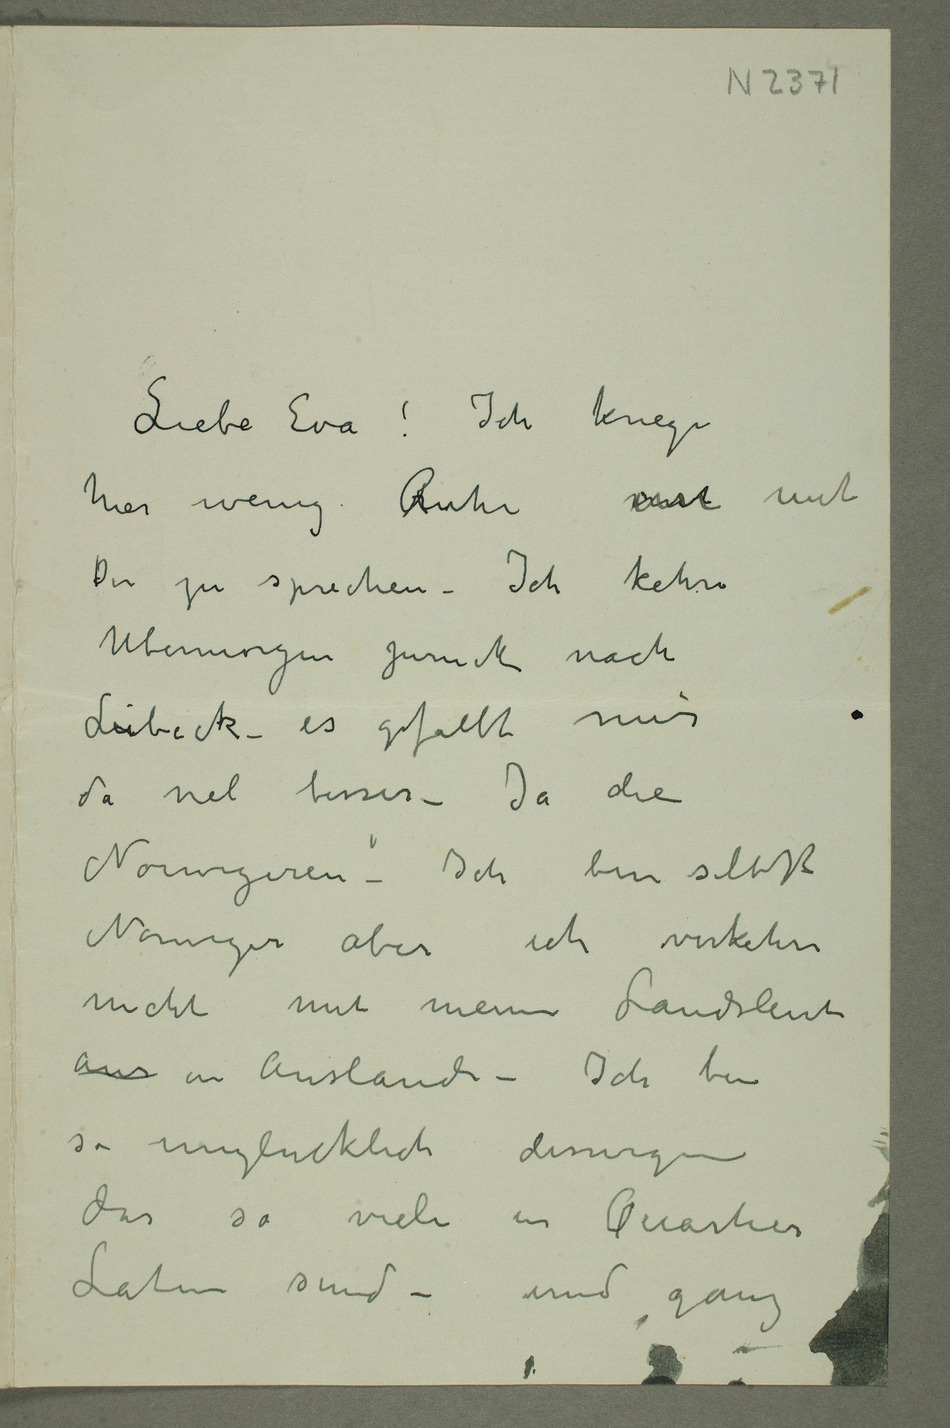 N 2371
Liebe Eva! Ich kriege
hier wenig Ruhe mit
Dir zu sprechen – Ich kehre
Ubermorgen zurück nach
Lübeck – es gefallt mir
da viel besser – Ja die
Norwegeren – Ich bin selbst
Norweger aber ich verkehre
nicht mit meine Landsleute
aus in Auslande – Ich bin
so unglücklich desswegen
das so viele in Quartier
Latin sind – und ganz